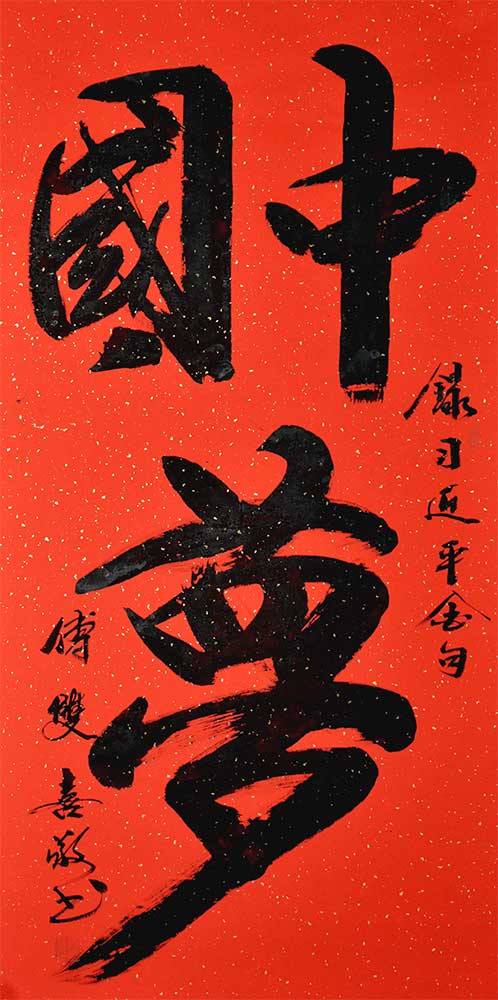 中國
夢
錄习近平金句
傅雙喜敬书